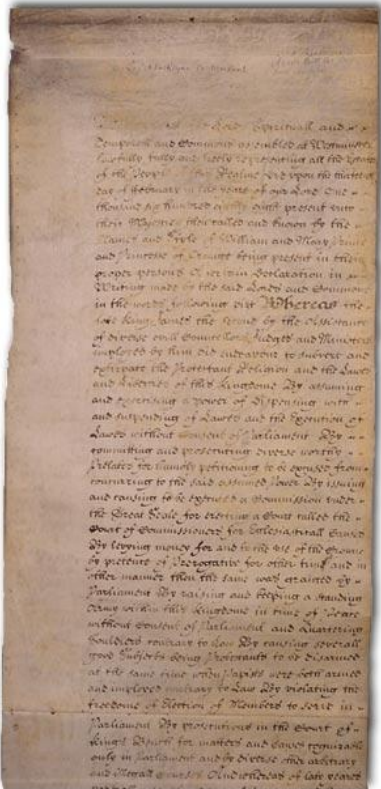 the Lords Spirituall and
Temporall and Commons assembled at Westminster
Lawfully fully and freely representing all the Estates
of the People of this Realme did upon the thirteenth
day of February in the yeare of our Lord One
thousand six hundred eighty eight present unto
their Majesties then called and known by the
Names and Stile of William and Mary Prince
and Princesse of Orange being present in their
proper Persons a certain Declaration in
Writeing made by the said Lords and Commons
in the words following viz Whereas the
late King James the Second by the Assistance
of diverse evill Councellors Judges and Ministers
imployed by him did endeavour to subvert and
extirpate the Protestant Religion and the Lawes
and Liberties of this Kingdome By assuming
and exerciseing a power of Dispensing with
and suspending of Lawes and the Execution of
Lawes without Consent of Parliament By
committing and prosecuting diverse worthy
Prelates for humbly petitioning to be excused from
concurring to the said assumed Power By issuing
and causing to be executed a Commission under
the Great Seale for erecting a Court called the
Court of Commissioners for Eclesiasticall Causes
By levying money for and to the use of the Crowne
by pretence of Prerogative for other time and in
other manner then the same was granted by
Parliament By raising and keeping a standing
Army within this Kingdome in time of Peace
without Consent of Parliament and Quartering
Souldiers contrary to Law By causing severall
good Subjects being Protestants to be disarmed
at the same time when Papists were both armed
and imployed contrary to Law By violating the
freedome of Election of Members to serve in
Parliament By prosecutions in the Court of
Kings Bench for matters and causes cognizable
only in Parliament and by diverse other arbitrary
and illegall Courses And whereas of late yeares